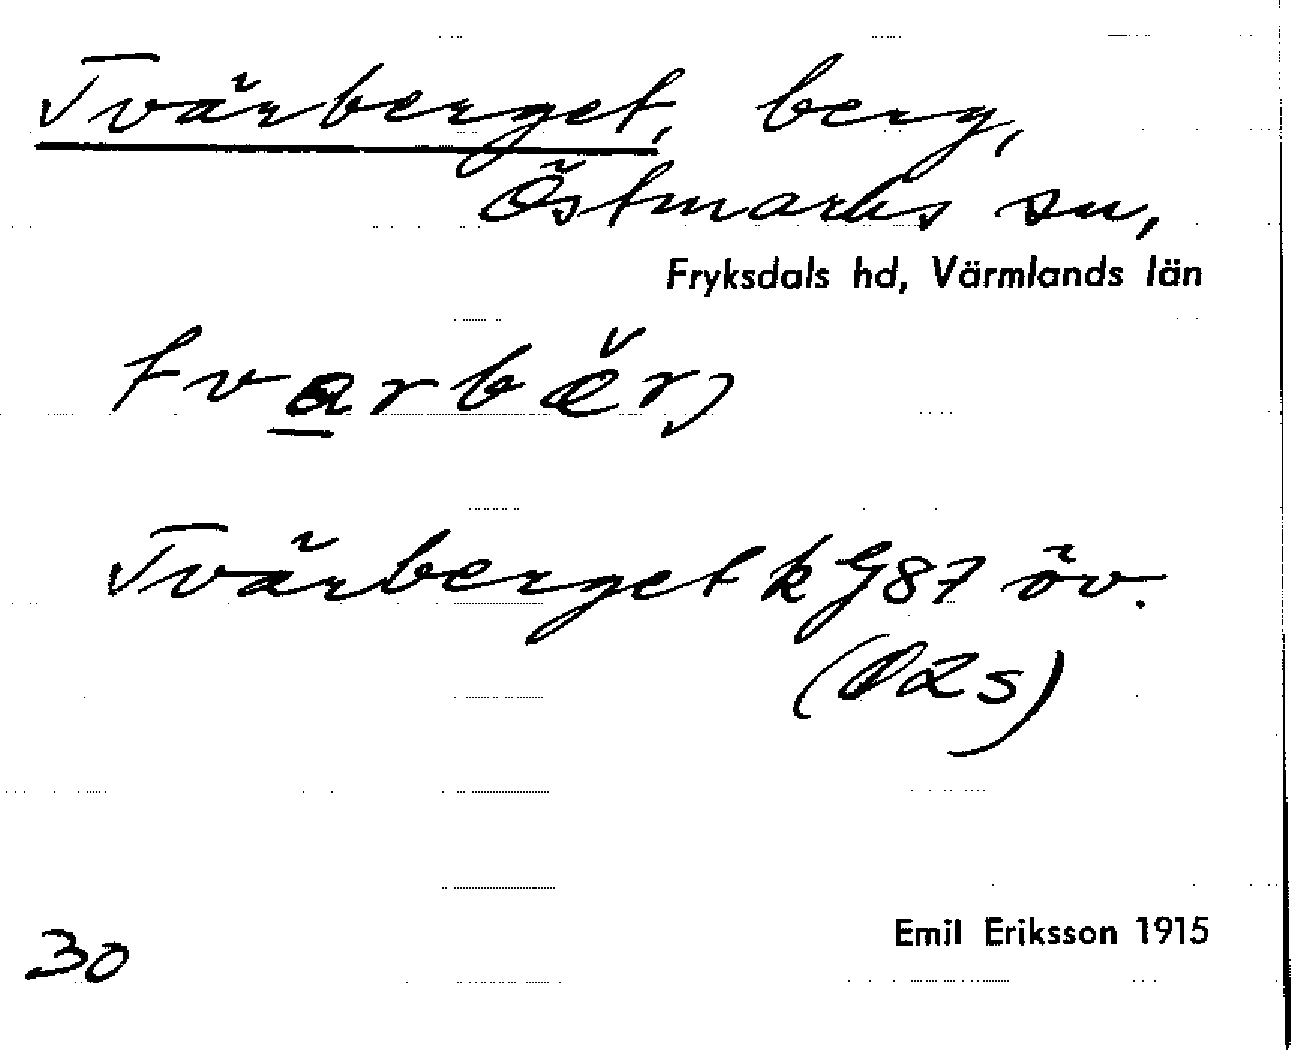 Tvärberget, berg,
Östmarks sn,
Fryksdals hd, Värmlands län
Tvärberget k G87 öv.
30
Emil Eriksson 1915